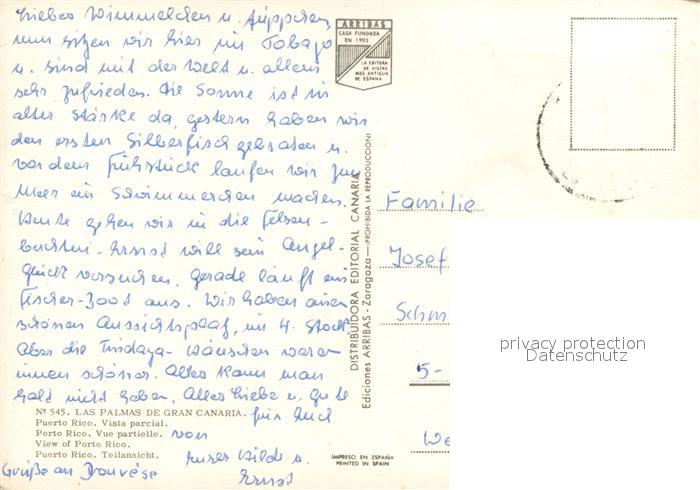 Liebes Wimmelchen u.
nun sitzen wir hier im Tobago
u. sind mit der Welt u. allem
sehr zufrieden. Die Sonne ist in
alter Stärke da, gestern haben wir
den ersten Silberfisch gebraten u.
vor dem Frühstück laufen wir zum
Meer ein Schwimmerchen machen.
Heute gehen wir in die Felsen-
buchten. Ernst will sein Angel-
glück versuchen, gerade läuft ein
Fischer-Boot aus. Wir haben einen
schönen Aussichtsplatz, im 4. Stock
Aber die Tindaya- waren
immer schöner. Alles kann man
halt nicht haben. Alles Liebe u. Gute
für Euch
von
Eurer Hilde u.
Ernst
Grüße an
Nº 545. LAS PALMAS DE GRAN CANARIA.
Puerto Rico. Vista parcial.
Porto Rico. Vue partielle.
View of Porto Rico.
Puerto Rico. Teilansicht.
ARRIBAS
CASA FUNDADA
EN 1905
LA EDITORA
DE VISTAS
MAS ANTIGUA
DE ESPAÑA
DISTRIBUIDORA EDITORIAL CANARIA
Ediciones ARRIBAS - Zaragoza - (PROHIBIDA LA REPRODUCCION)
IMPRESO EN ESPAÑA
PRINTED IN SPAIN
Familie
Josef
Schm
5-
We
privacy protection
Datenschutz